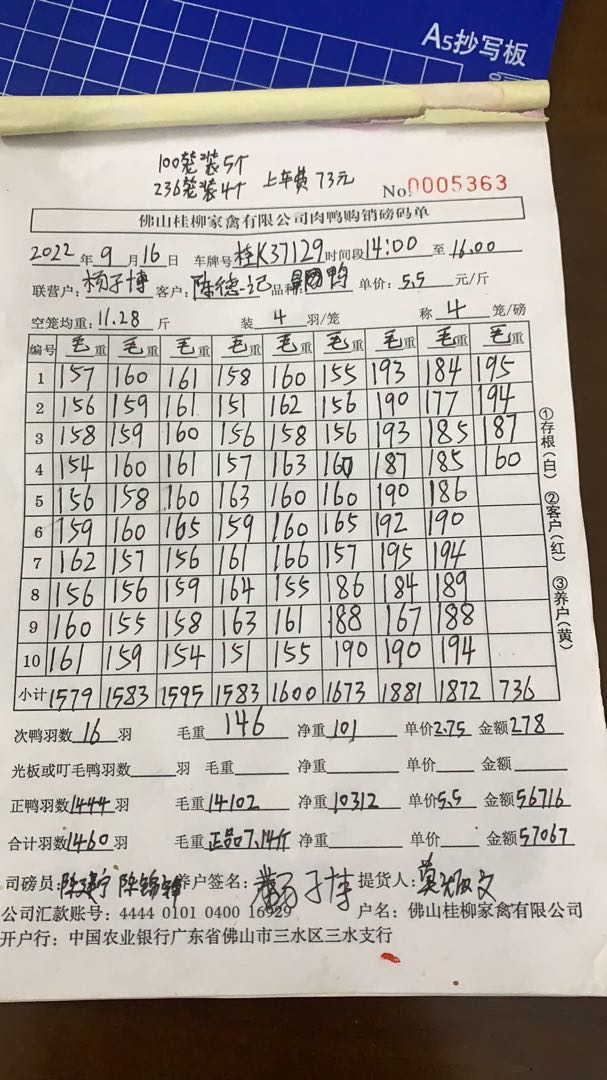 A5抄写板
100笼装5个
236笼装4个 上车费73元
No.0005363
佛山桂柳家禽有限公司肉鸭购销磅码单
2022年9月16日 车牌号桂K37129时间段14:00至16:00
联营户:杨子博 客户:陈德记 品种: 鸭 单价:5.5元/斤
空笼均重:11.28斤 装4羽/笼 称4笼/磅
编号 毛重 毛重 毛重 毛重 毛重 毛重 毛重 毛重 毛重
1 157 160 161 158 160 155 193 184 195
2 156 159 161 151 162 156 190 177 194
3 158 159 160 156 158 156 193 185 187
4 154 160 161 157 163 160 187 185 160
5 156 158 160 163 160 160 190 186
6 159 160 165 159 160 165 192 190
7 162 157 156 161 166 157 195 194
8 156 156 159 164 155 186 184 189
9 160 155 158 163 161 188 167 188
10 161 159 154 151 155 190 190 194
小计 1579 1583 1595 1583 1600 1673 1881 1872 736
①存根(白) ②客户(红) ③养户(黄)
次鸭羽数16羽 毛重146 净重101 单价2.75 金额278
光板或叮毛鸭羽数 羽 毛重 净重 单价 金额
正鸭羽数1444羽 毛重14102 净重10312 单价5.5 金额56716
合计羽数1460羽 毛重正品7.14斤 净重 单价 金额57067
司磅员: 养户签名:杨子博 提货人:
公司汇款账号:4444 0101 0400 16929 户名:佛山桂柳家禽有限公司
开户行:中国农业银行广东省佛山市三水区三水支行